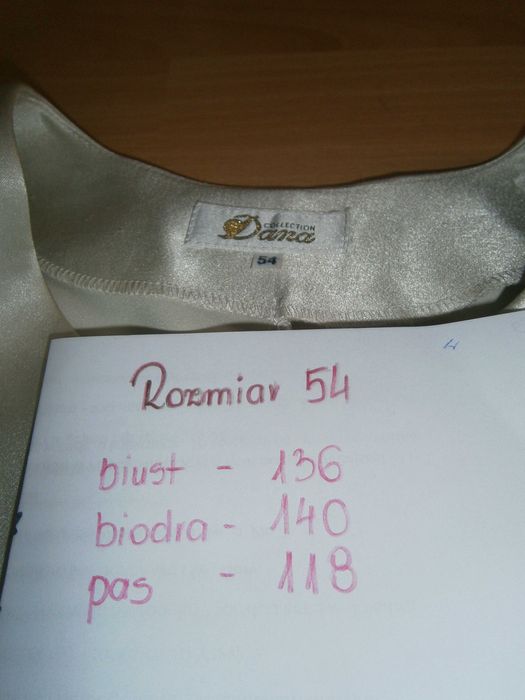 COLLECTION
Dana
54
Rozmiar 54
biust - 136
biodra - 140
pas - 118